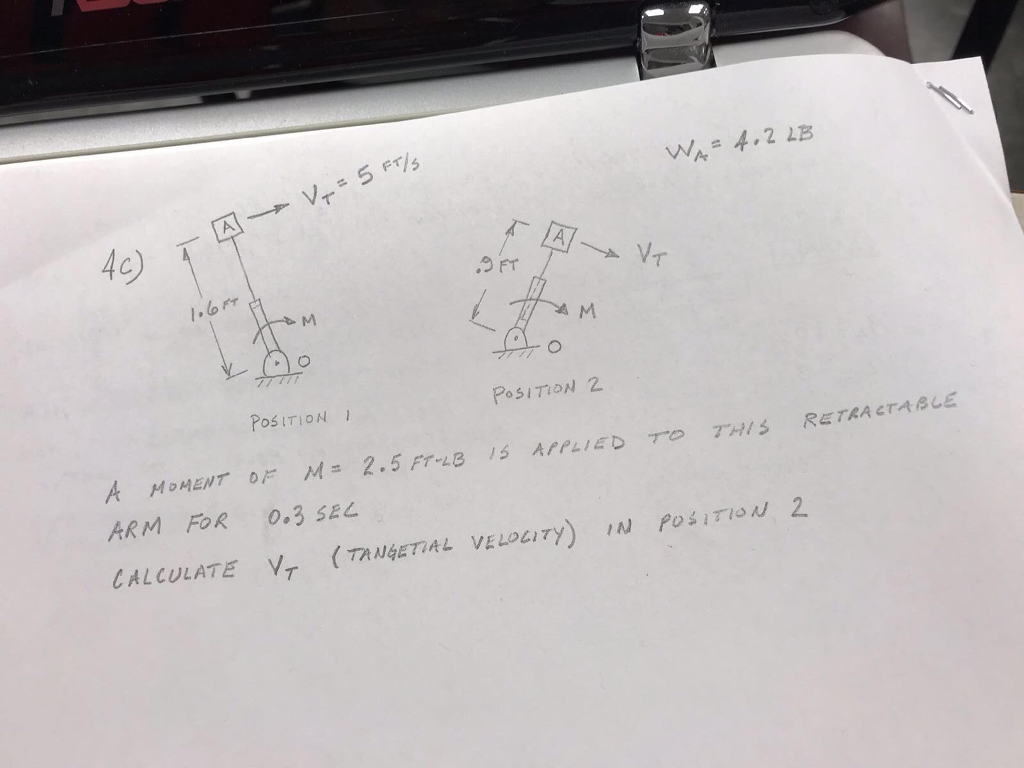 W_A = 4.2 LB
V_T = 5 FT/S
4C)
A
A
V_T
.9 FT
1.6 FT
M
M
O
O
POSITION 1
POSITION 2
A MOMENT OF M = 2.5 FT-LB IS APPLIED TO THIS RETRACTABLE
ARM FOR 0.3 SEC
CALCULATE V_T (TANGETIAL VELOCITY) IN POSITION 2